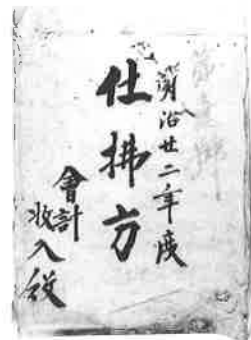 明治廿二年度
仕拂方
會計
收入役